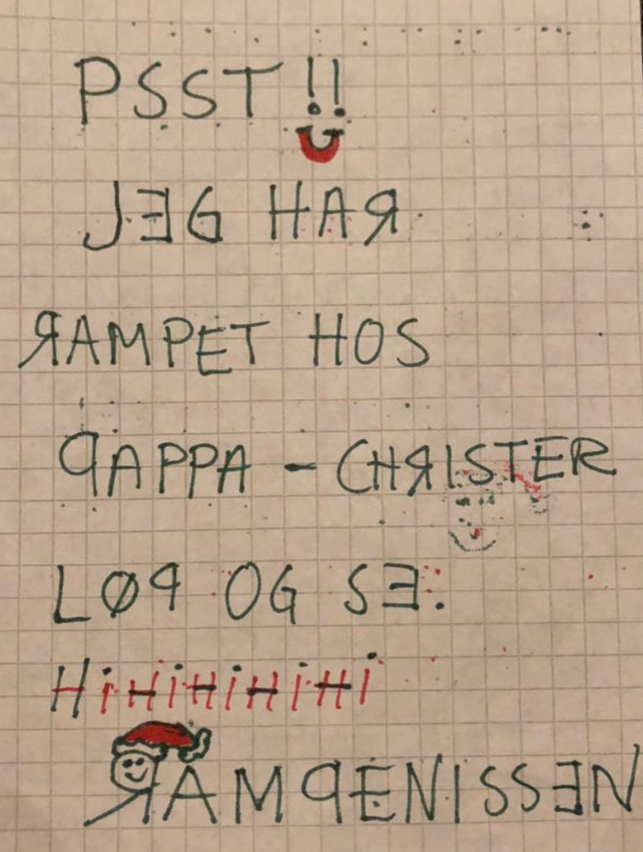 PSST!!
JEG HAR
RAMPET HOS
PAPPA - CHRISTER
LØP OG SE.
HiHiHiHiHi
RAMPENISSEN